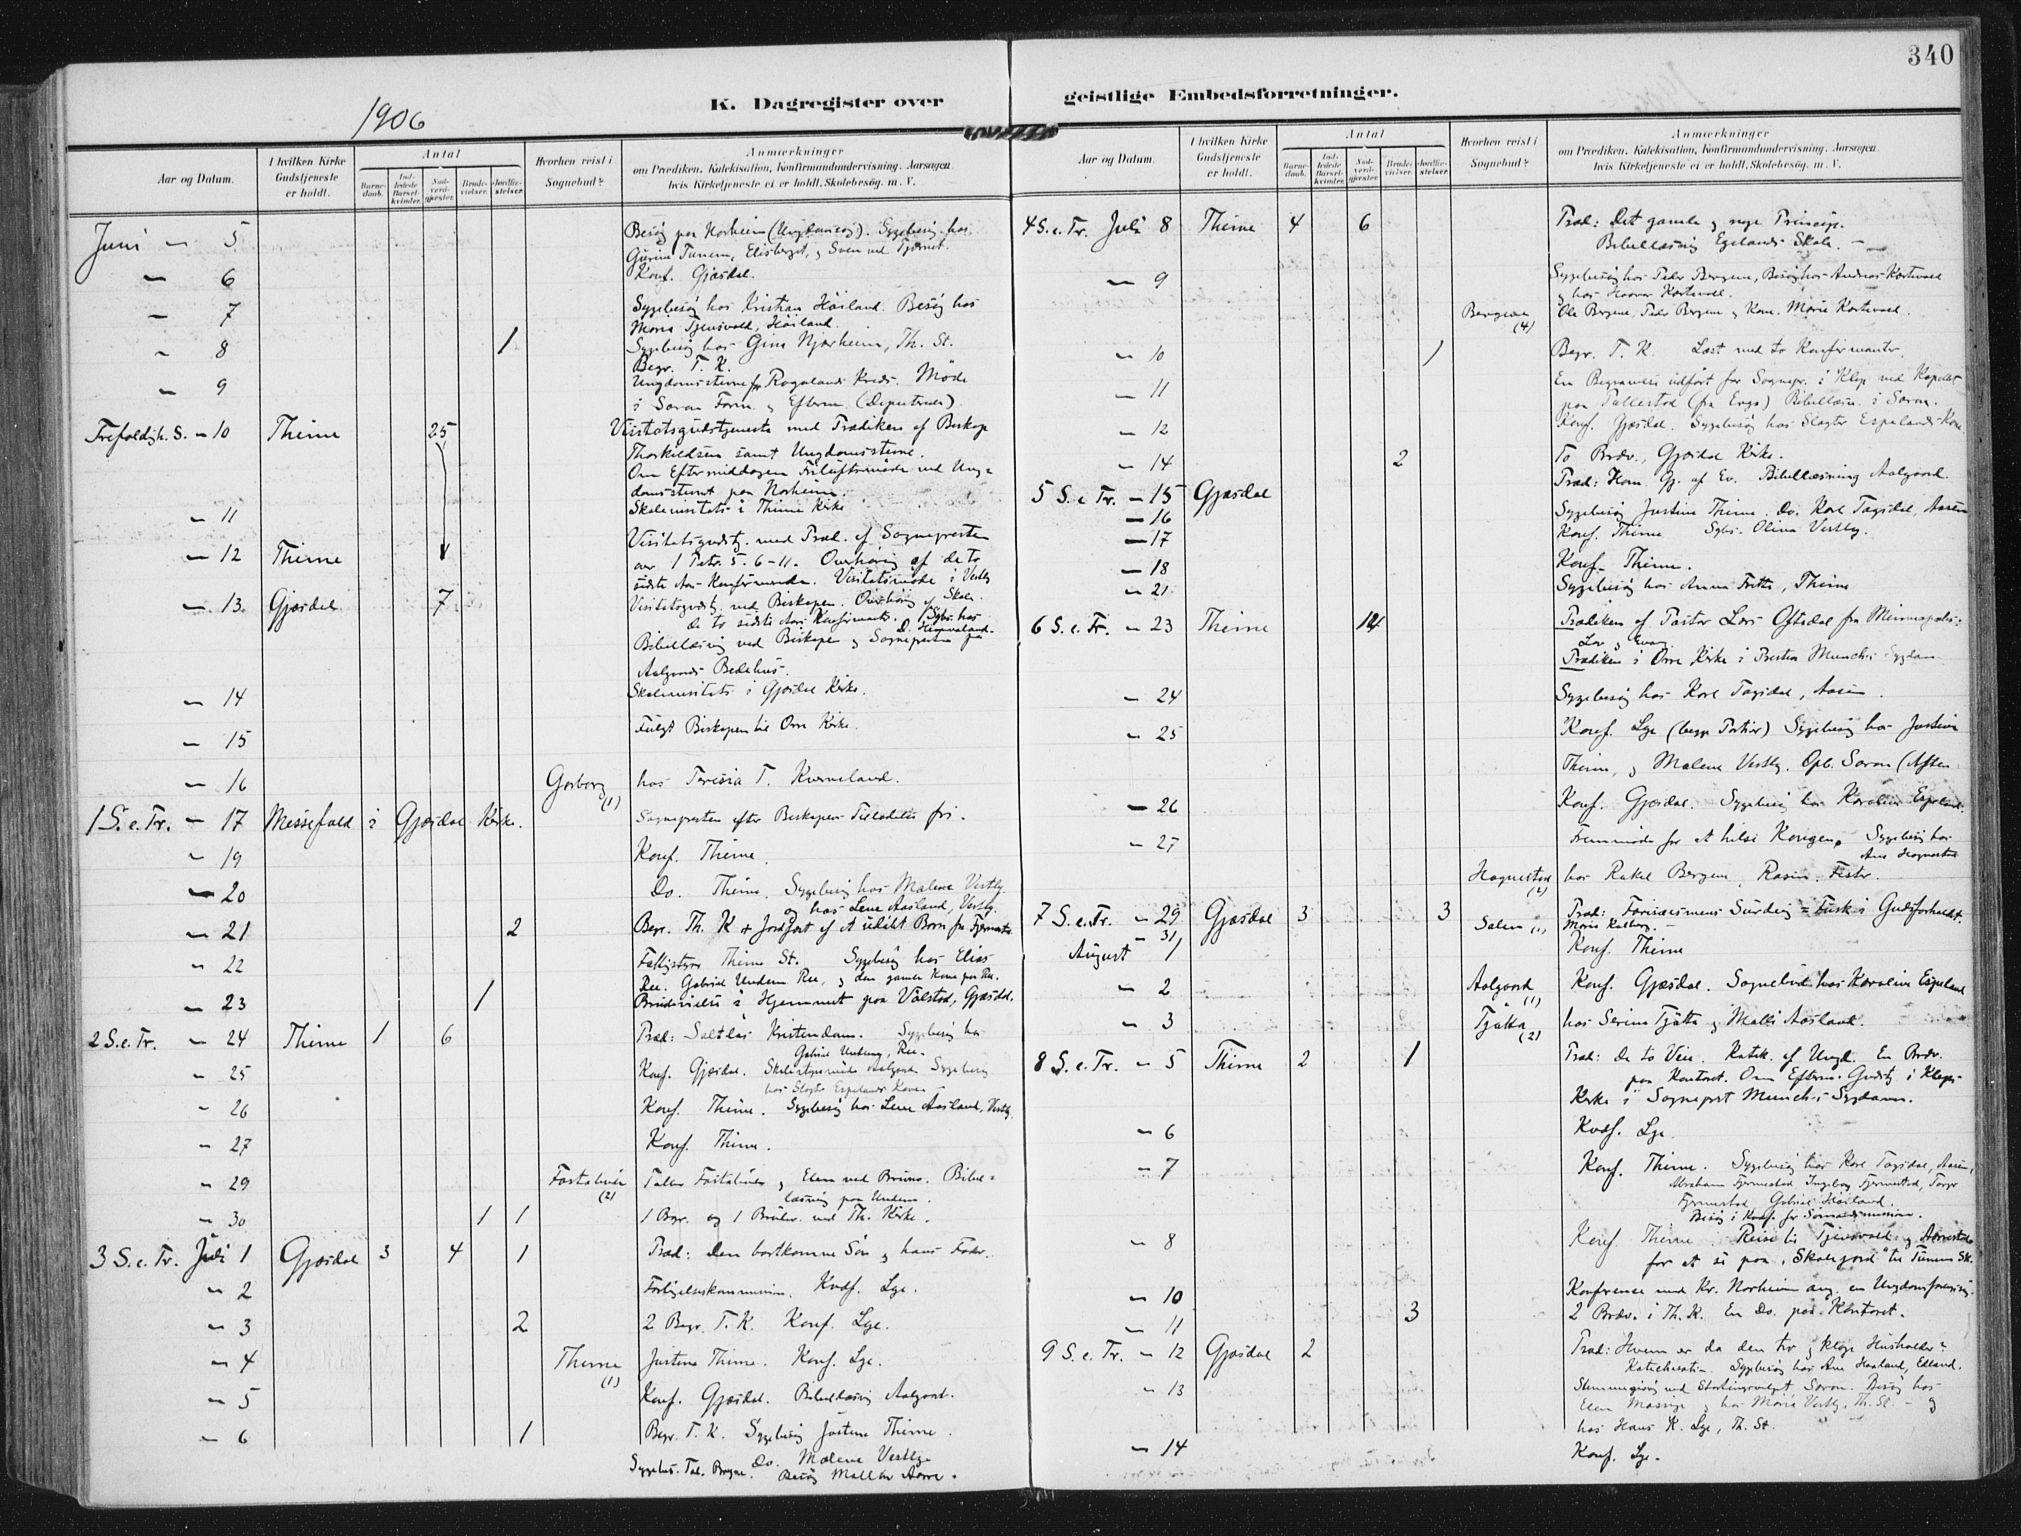 340
1906
K. Dagregister over geistlige Embedsforretninger.
Aar og Datum.
I hvilken Kirke Gudstjeneste er holdt.
Antal
Barnedaab.
Indledede Barselkvinder.
Nadverdgjæster.
Brudevielser.
Jordfæstelser.
Hvorhen reist i Sognebud?
Anmærkninger
om Prædiken, Katekisation, Konfirmandundervisning, Aarsagen hvis Kirketjeneste ei er holdt, Skolebesøg, m. V.
Juni — 5 Besøg paa Norheim (Ungdomssag). Sygebesøg hos
Gurine Tunem, Elisberget, og Sven ved Tjærnet.
— 6 Konf. Gjæsdal.
— 7 Sygebesøg hos Kristian Höiland. Besøg hos
Maria Tjensvold, Höiland.
— 8 1 Sygebesøg hos Gine Njærheim, Th. St.
Begr. T. K.
— 9 Ungdomsstevne for Rogalands Kreds. Møde
i Saron Form. og Efterm. (Deputerede).
Trefoldigh. S. — 10 Thime 25 Visitatsgudstjeneste med Prædiken af Biskop
Thorkildsen samt Ungdomsstevne.
Om Eftermiddagen Friluftsmøde ved Ung=
domsstevnet paa Norheim.
— 11 Skolevisitats i Thime Kirke
— 12 Thime Visitatsgudstj. med Præd. af Sognepresten
over 1 Petr. 5. 6-11. Overhøring af de to
sidste Aars Konfirmerede. Visitatsmøde i Vestly
Skole.
— 13. Gjæsdal 7 Visitatsgudstj. ved Biskopen. Overhøring af
de to sidste Aars Konfirmerede. Sybs. hos
Bibellæsning ved Biskopen og Sognepresten paa
Aalgaards Bedehus.
— 14 Skolevisitats i Gjæsdal Kirke.
— 15 Fulgt Biskopen til Orre Kirke.
— 16 Garborg (1) hos Teresia T. Kverneland.
1 S. e. Tr. — 17 Messefald i Gjæsdal Kirke. Sognepresten efter Biskopens Tilladelse fri.
— 19 Konf. Thime.
— 20 Do. Thime. Sygebesøg hos Malene Vestly.
og hos Lene Aasland, Vestly.
— 21 2 Begr. Th. K + Jordfæst af et udöbt Barn fra Fjermestad
— 22 Fattigstyre Thime St. Sygebesøg hos Elias
Ree. Gabriel Undem Ree, og den gamle Kone paa Ree.
— 23 1 Brudevielse i Hjemmet paa Vølstad, Gjæsdal.
2 S. e. Tr. — 24 Thime 1 6 Præd: Saltløs Kristendom. Sygebesøg hos
Gabriel Undem, Ree.
— 25 Konf. Gjæsdal. Skolestyremøde Aalgaard. Sygebesøg
hos Slagter Espelands Kone
— 26 Konf. Thime. Sygebesøg hos Lene Aasland, Vestly.
— 27 Konf. Thime.
— 29 (2)
læsning paa Undem.
— 30 1 1 1 Begr. og 1 Brudev. ved Th. Kirke.
3 S. e. Tr. Juli 1 Gjæsdal 3 4 1 Præd: Den bortkomne Søn og hans Fader.
— 2 Forligelseskommission. Konf. Lye.
— 3 2 2 Begr. T. K. Konf. Lye.
— 4 Thime (1) Justine Thime. Konf. Lye.
— 5 Konf. Gjæsdal. Bibellæsning Aalgaard.
— 6 1 Begr. T. K. Sygebesøg Justine Thime.
Do. Malene Vestly
Aar og Datum.
I hvilken Kirke Gudstjeneste er holdt.
Antal
Barnedaab.
Indledede Barselkvinder.
Nadverdgjæster.
Brudevielser.
Jordfæstelser.
Hvorhen reist i Sognebud?
Anmærkninger
om Prædiken, Katekisation, Konfirmandundervisning, Aarsagen hvis Kirketjeneste ei er holdt, Skolebesøg, m. V.
4 S. e. Tr. Juli 8 Thime 4 6 Præd: Det gamle og nye Princip.
Bibellæsning Egelands Skole. —
— 9 Sygebesøg hos Peder Bergene, Besøg hos Andreas Kartevold
og hos Haavar Kartevold.
Bergene (4) Ole Bergene, Peder Bergene og Kone. Marie Kartevold.
— 10 1 Begr. T. K. Læst med to Konfirmanter.
— 11 En Begravelse udført for Sognepr. i Klep ved Kapellet
paa (fra Erga) Bibellæsn. i Saron.
— 12 Konf. Gjæsdal. Sygebesøg hos Slagter Espelands Kone
— 14 2 To Brdv., Gjæsdal Kirke.
5 S. e. Tr. — 15 Gjæsdal Præd: Bibellæsning Aalgaard.
— 16 Sygebesøg Justine Thime. Do. Karl Tagsdal, Aasen
— 17 Konf. Thime Sybs. Olina Vestly.
— 18 Konf. Thime.
— 21 Sygebesøg hos Anna Fritte, Thime
6 S. e. Tr. — 23 Thime 14 Prædiken af Pastor Lars Oftedal fra Minneapolis:
Lov og Evang.
Prædiken i Orre Kirke i Presten Munchs Sygdom
— 24 Sygebesøg hos Karl Tagsdal, Aasen.
— 25 Konf. Lye (begge Partier) Sygebesøg hos Justine
Thime, og Malene Vestly. Opb. Saron (Aften
— 26 Konf. Gjæsdal. Sygebesøg hos Karoline Espeland.
— 27 Fremmøde for at hilse Kongen. Sygebesøg hos
Ane Hognestad
Hognestad (2) hos Rakel Bergene,
7 S. e. Tr. — 29 Gjæsdal 3 3 Præd: Farisæernes Surdeig = Fusk i Gudsforholdet.
Salen (1) Marie Kalberg. —
— 31
August — 1 Konf. Thime
— 2 Aalgaard (1) Konf. Gjæsdal. Sognebud hos Karoline Espeland
— 3 Tjåtta (2) hos Serine Tjåtta og Malli Aasland.
8 S. e. Tr. — 5 Thime 2 1 Præd: De to Veie. Katek. af Ungd. En Brdv.
paa Kontoret. Om Efterm. Gudstj. i Kleps
Kirke i Sogneprst Munchs Sygdom.
— 6 Konf. Lye
— 7 Konf. Thime. Sygebesøg hos Karl Tagsdal, Aasen,
Abraham Fjermestad, Ingeborg Fjermestad, Torger
Fjermestad Gabriel Høiland.
— 8 Konf Thime. Reise til Tjensvold og
for at se paa "Skolejord" til Tunem Sk.
— 10 Konference med Kr. Norheim ang. en Ungdomsforening.
— 11 3 2 Brdv. i Th. K. En Do. paa Kontoret.
9 S. e. Tr. — 12 Gjæsdal 2 Præd: Hvem er da den tro og kloge Husholder?
Katekisation. Sygebesøg hos Ane Haaland, Edland.
— 13 Stemmegivning ved Stortingsvalget, Saron. Besøg hos
Elen Massige og hos Maria Vestly, Th. St. — og
hos Hans K. Lye, Th. St.
— 14 Konf. Lye.